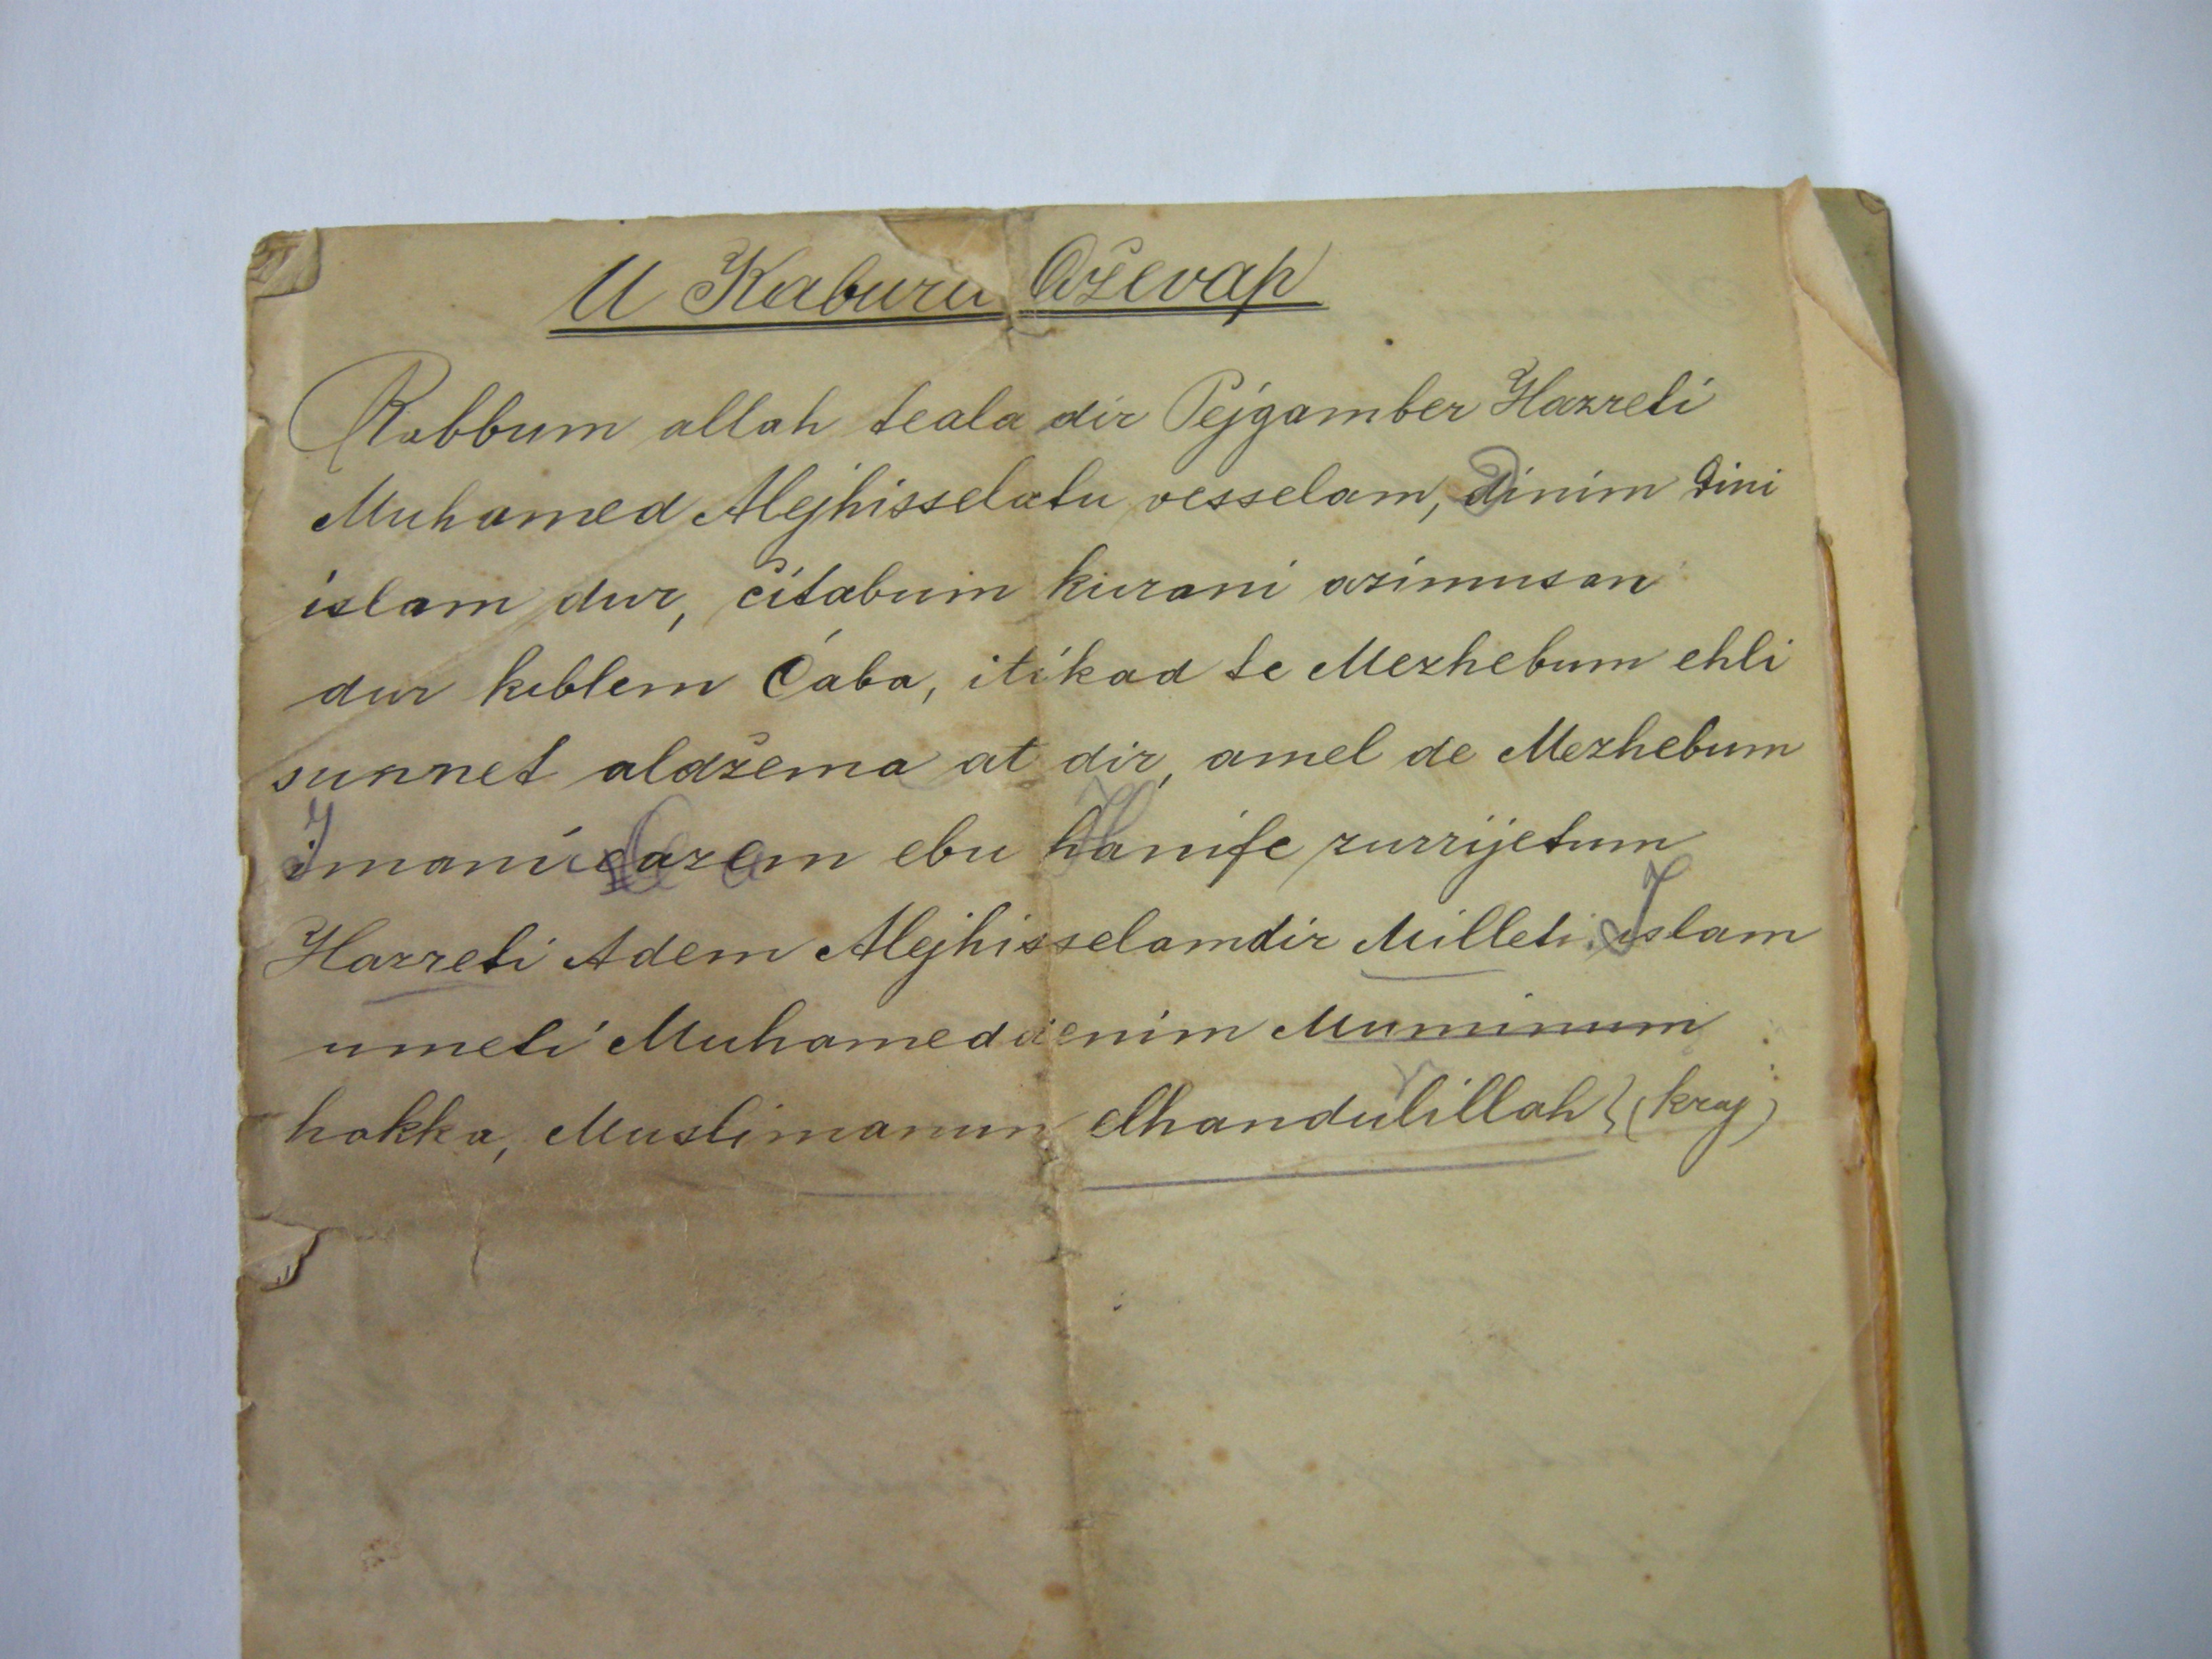 U Kaburu Dževap
Rabbum allah teala dir Pejgamber Hazreti
Muhamed Alejhisselatu vesselam, Dinim Dini
islam dur, čitabum kurani azimusan
dur kıblem Ćaba, itikad te Mezhebum ehli
sunnet aldžema at dir, amel de Mezhebum
Imani eazem ebu Hanife zurrijetum
Hazreti Adem Alejhisselamdir Milleti Islam
umeti Muhamed denim Muminum
hakka, Muslimanum elhandulillah (kraj)